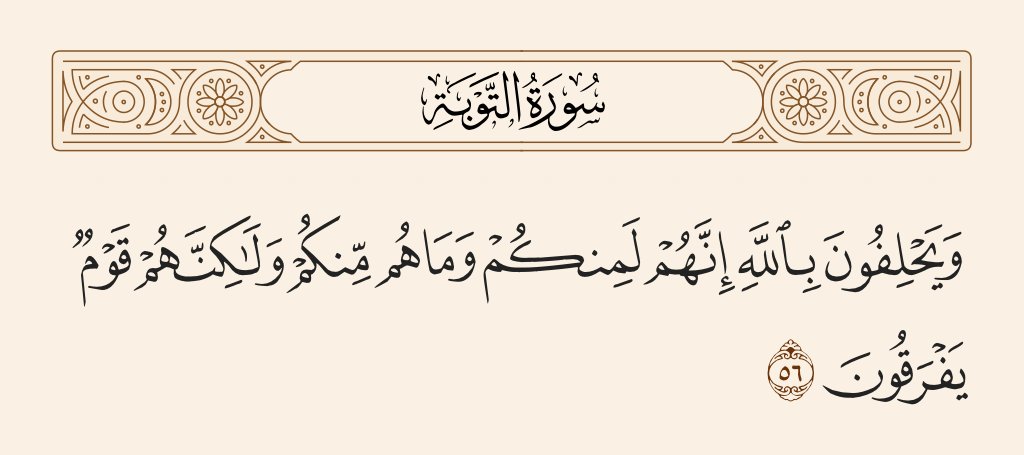 سُورَةُ التَّوْبَةِ
وَيَحْلِفُونَ بِٱللَّهِ إِنَّهُمْ لَمِنكُمْ وَمَا هُم مِّنكُمْ وَلَٰكِنَّهُمْ قَوْمٌ
يَفْرَقُونَ ٥٦